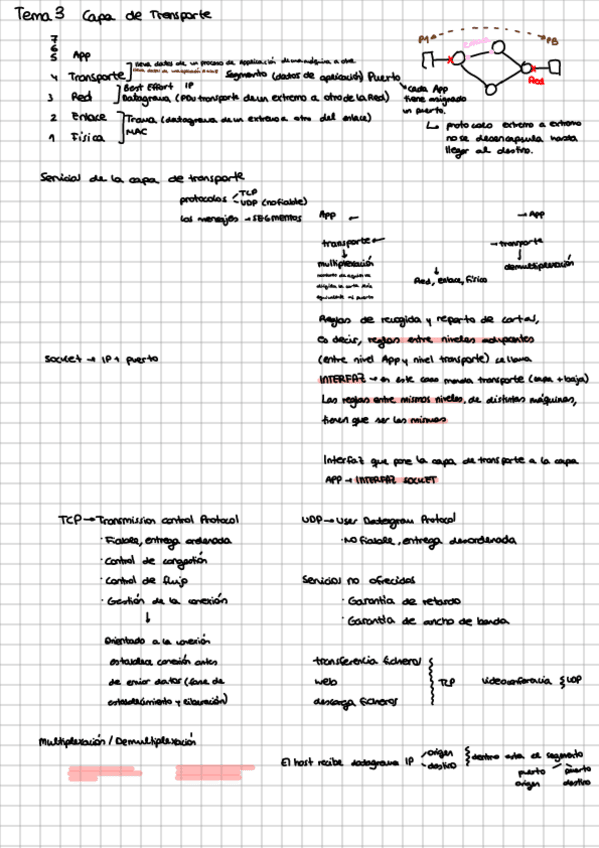 Tema 3 Capa de Transporte
7
6
5 App
4 Transporte
Segmento (datos de aplicación) Puerto
cada App
tiene asignado
un puerto.
Best Effort IP
3 Red
Datagrama (PDU transporte de un extremo a otro de la Red)
2 Enlace
Trama (datagrama de un extremo a otro del enlace)
1 Física
MAC
PA
PB
Red
protocolo extremo a extremo
no se desencapsula hasta
llegar al destino.
Servicios de la capa de transporte
protocolos
TCP
UDP (no fiable)
los mensajes → SEGMENTOS
App ←
→ App
transporte ←
→ transporte
↓
multiplexación
demultiplexación
Red, enlace, físico
Reglas de recogida y reparto de cartas,
es decir, reglas entre niveles adyacentes
Socket → IP + puerto
(entre nivel App y nivel transporte) se llama
INTERFAZ → en este caso manda transporte (capa + baja)
Las reglas entre mismos niveles, de distintas máquinas,
tienen que ser las mismas
Interfaz que pone la capa de transporte a la capa
APP → INTERFAZ SOCKET
TCP → Transmission Control Protocol
· Fiable, entrega ordenada
· Control de congestión
· Control de flujo
· Gestión de la conexión
↓
Orientado a la conexión
establece conexión antes
de enviar datos (fase de
establecimiento y liberación)
UDP → User Datagram Protocol
· NO Fiable, entrega desordenada
Servicios no ofrecidos
· Garantía de retardo
· Garantía de ancho de banda
transferencia ficheros
web
descarga ficheros
TCP
videoconferencia { UDP
Multiplexación / Demultiplexación
El host recibe datagrama IP
origen
destino
dentro esta el segmento
puerto origen
puerto destino